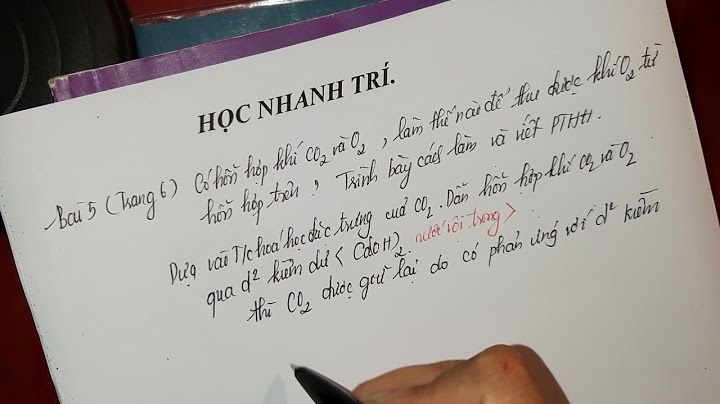 HỌC NHANH TRÍ.
Bài 5 (Trang 6) Có hỗn hợp khí CO₂ và O₂, làm thế nào để thu được khí O₂ từ
hỗn hợp trên? Trình bày cách làm và viết PTHH.
Dựa vào T/c hoá học đặc trưng của CO₂. Dẫn hỗn hợp khí CO₂ và O₂
qua d² kiềm dư < Ca(OH)₂ nước vôi trong >
thì CO₂ được giữ lại do có phản ứng với d² kiềm